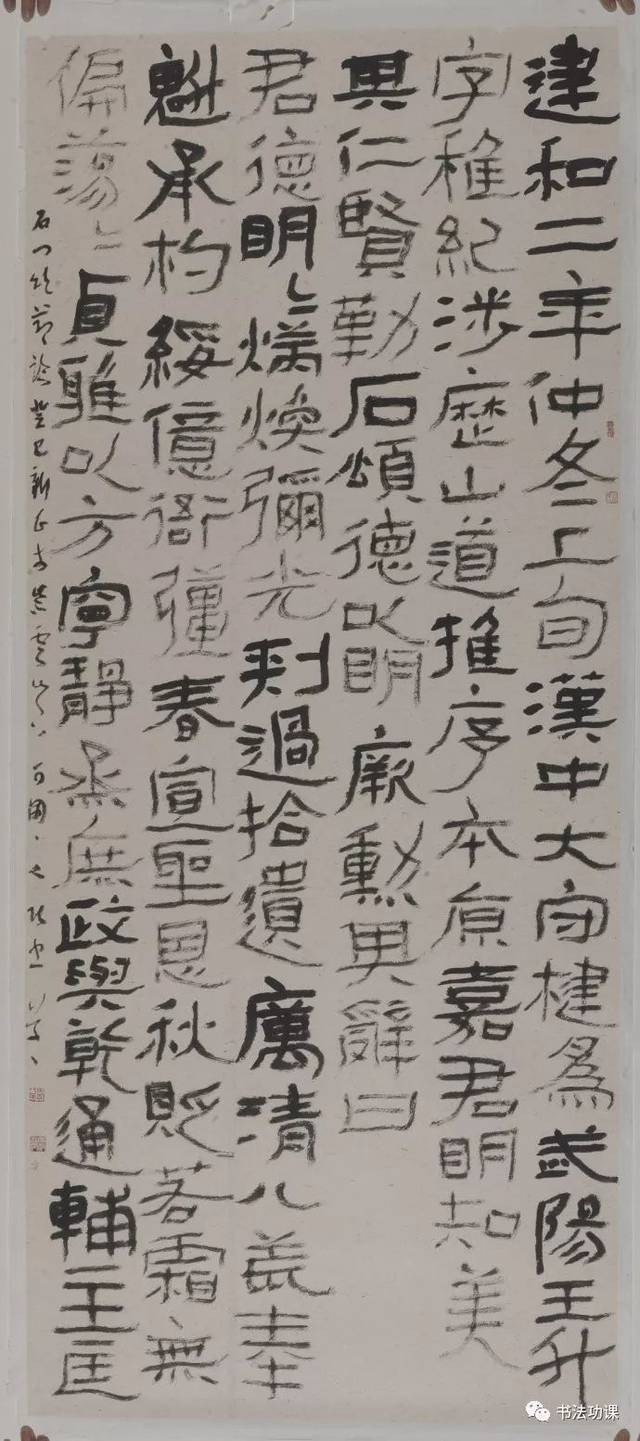 建和二年仲冬上旬漢中大守楗為武陽王升
字稚紀涉歷山道推序本原嘉君明知美
其仁賢勒石頌德以明厥勳其辭曰
君德明〻炳煥彌光刺過拾遺厲清八荒奉
魁承杓綏億衙彊春宣聖恩秋貶若霜無
偏蕩〻貞雅以方寧靜烝庶政與乾通輔主匡
石門頌節臨癸巳新正
书法功课